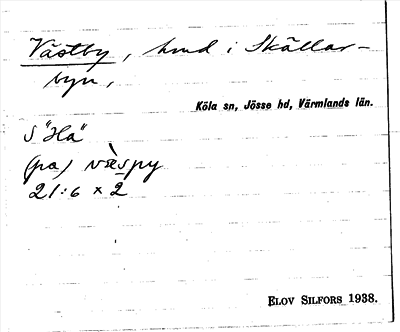 Västby, hmd i Skällar-
byn,
Köla sn, Jösse hd, Värmlands län.
S "Ha"
(pa) væ̀spy
21:6 × 2
ELOV SILFORS 1938.